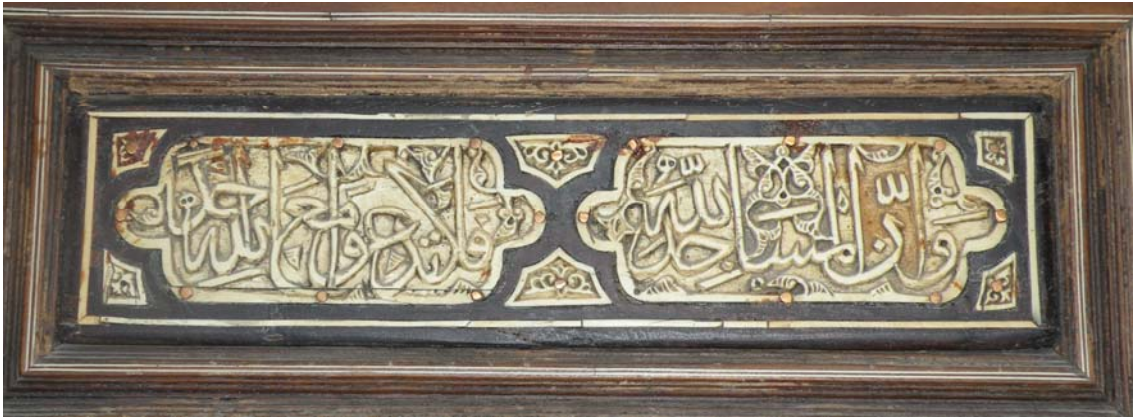 وأن المساجد لله
فلا تدعوا مع الله أحدا